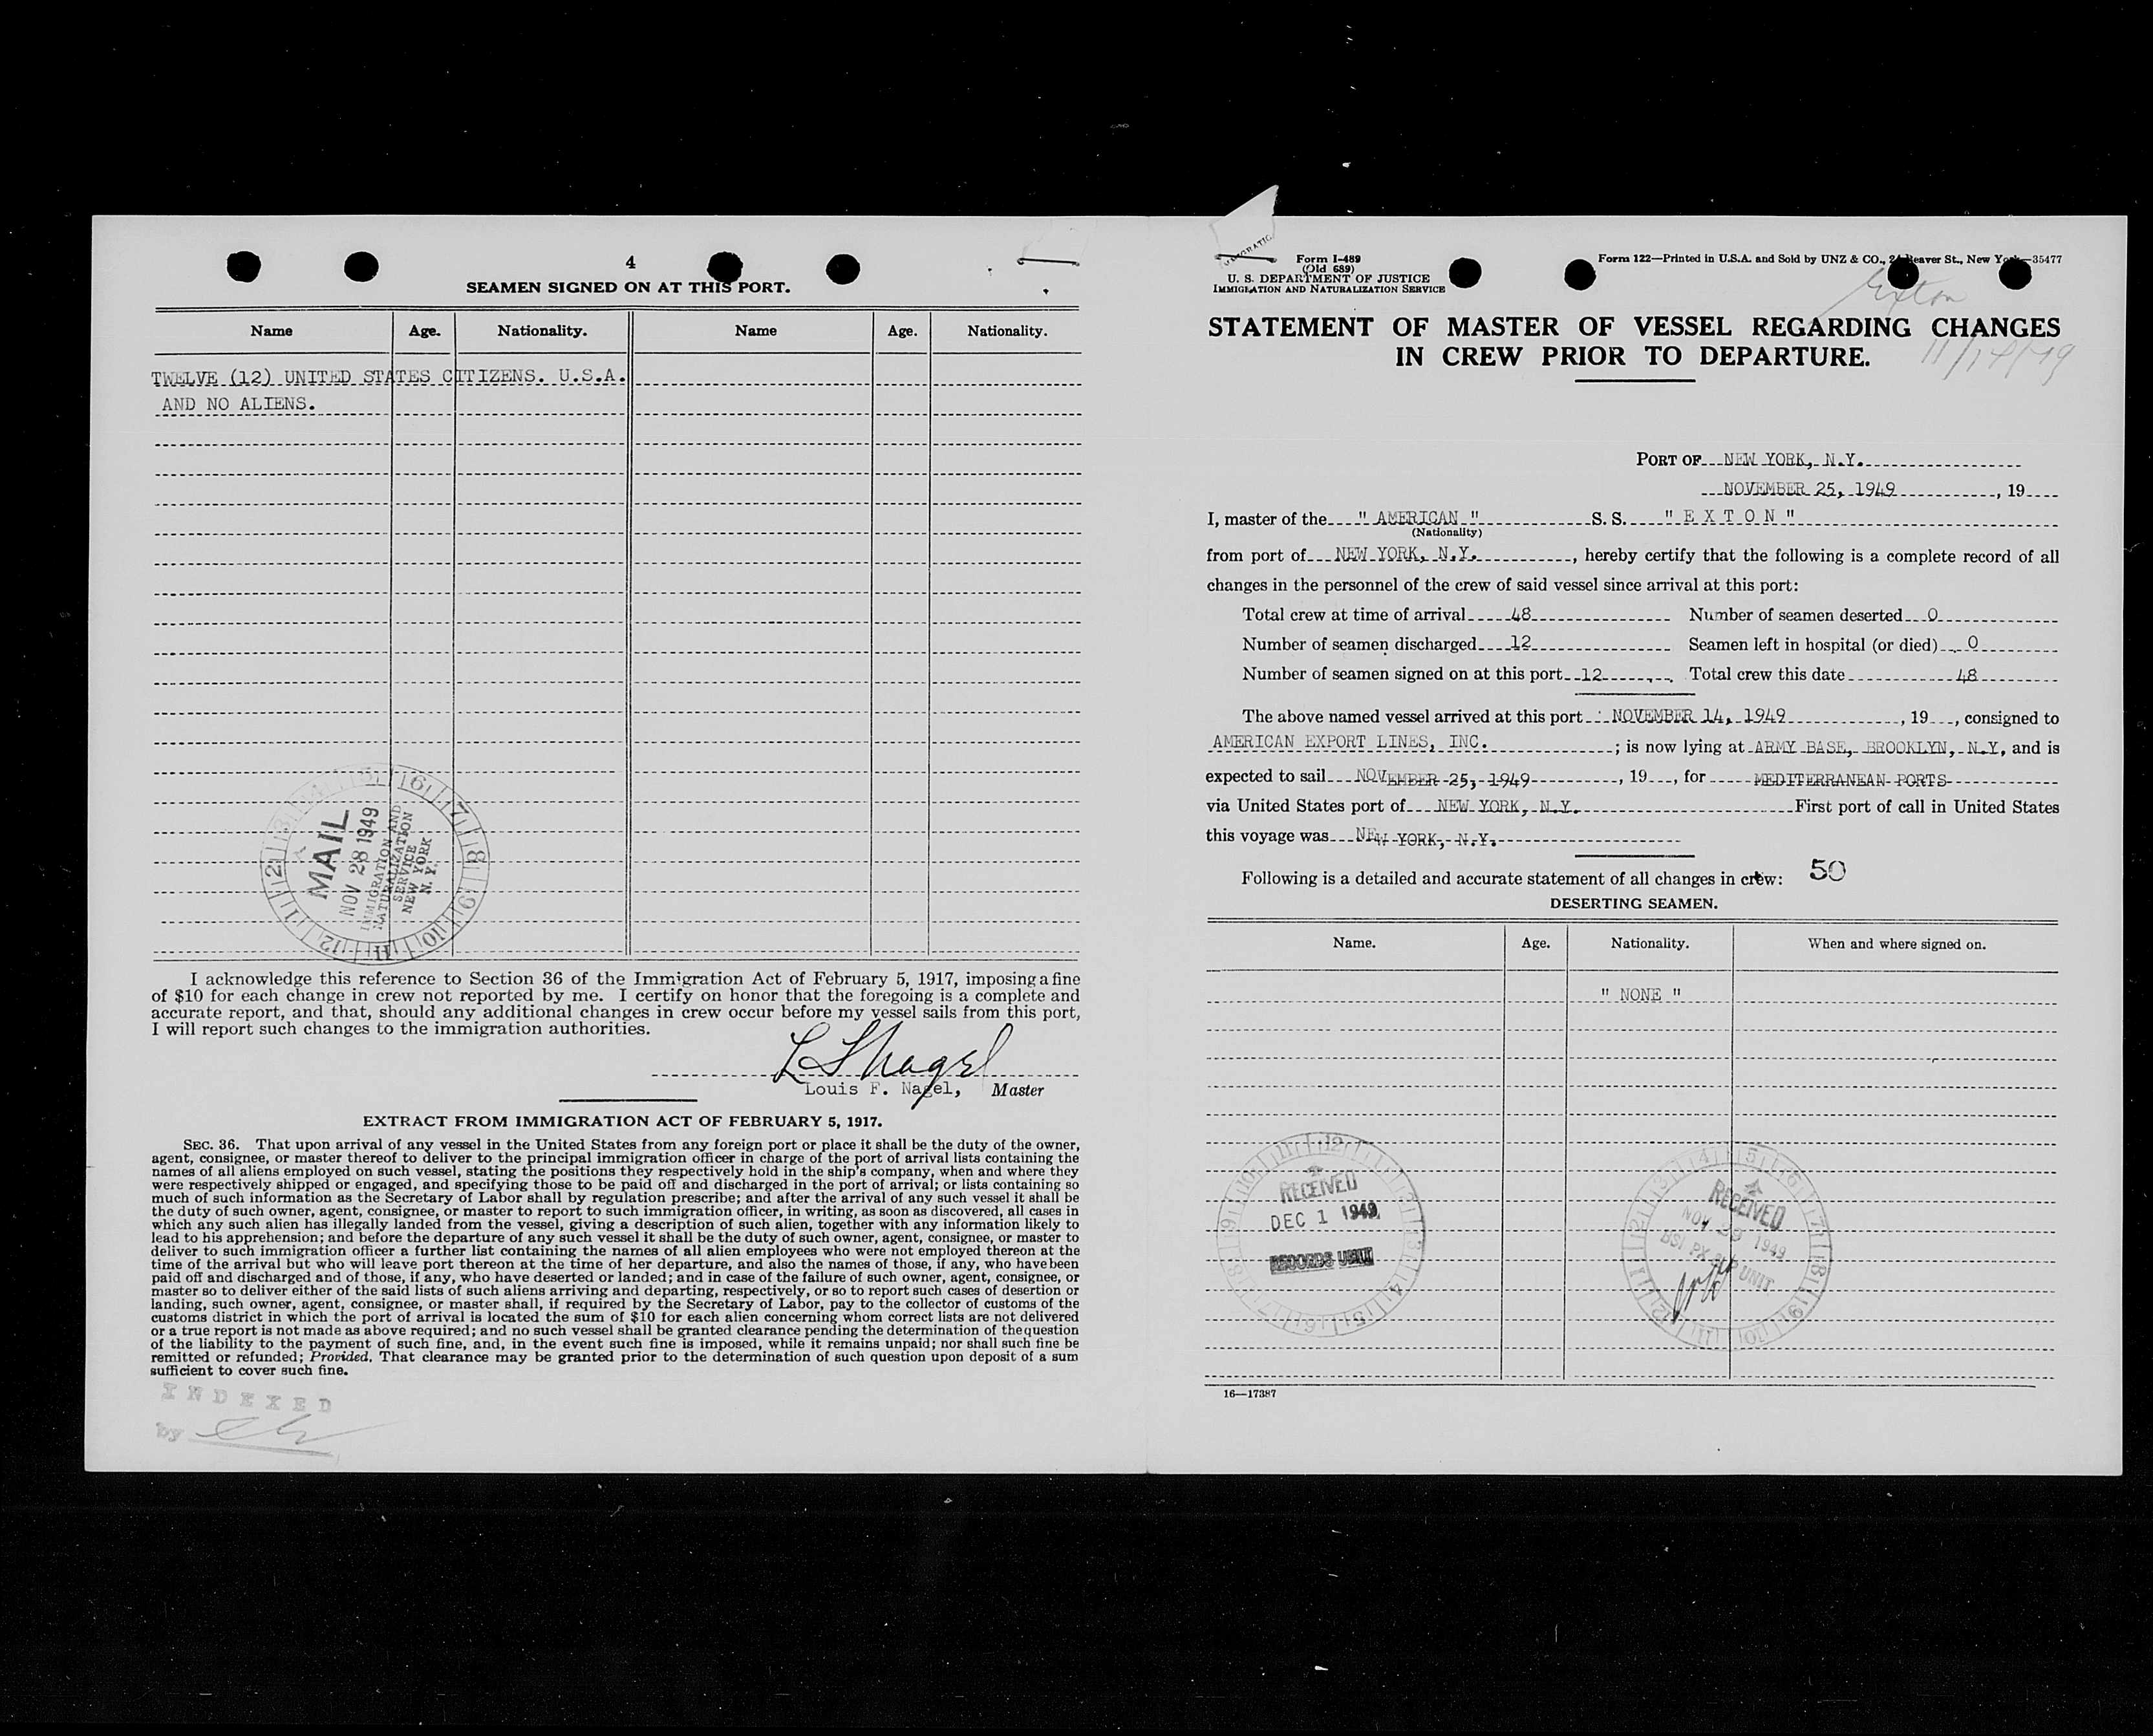 4
SEAMEN SIGNED ON AT THIS PORT.
Name Age. Nationality. Name Age. Nationality.
TWELVE (12) UNITED STATES CITIZENS. U.S.A.
AND NO ALIENS.
MAIL
NOV 28 1949
IMMIGRATION AND
NATURALIZATION
SERVICE
NEW YORK
N. Y.
I acknowledge this reference to Section 36 of the Immigration Act of February 5, 1917, imposing a fine
of $10 for each change in crew not reported by me. I certify on honor that the foregoing is a complete and
accurate report, and that, should any additional changes in crew occur before my vessel sails from this port,
I will report such changes to the immigration authorities.
Louis F. Nagel, Master
EXTRACT FROM IMMIGRATION ACT OF FEBRUARY 5, 1917.
SEC. 36. That upon arrival of any vessel in the United States from any foreign port or place it shall be the duty of the owner,
agent, consignee, or master thereof to deliver to the principal immigration officer in charge of the port of arrival lists containing the
names of all aliens employed on such vessel, stating the positions they respectively hold in the ship's company, when and where they
were respectively shipped or engaged, and specifying those to be paid off and discharged in the port of arrival; or lists containing so
much of such information as the Secretary of Labor shall by regulation prescribe; and after the arrival of any such vessel it shall be
the duty of such owner, agent, consignee, or master to report to such immigration officer, in writing, as soon as discovered, all cases in
which any such alien has illegally landed from the vessel, giving a description of such alien, together with any information likely to
lead to his apprehension; and before the departure of any such vessel it shall be the duty of such owner, agent, consignee, or master to
deliver to such immigration officer a further list containing the names of all alien employees who were not employed thereon at the
time of the arrival but who will leave port thereon at the time of her departure, and also the names of those, if any, who have been
paid off and discharged and of those, if any, who have deserted or landed; and in case of the failure of such owner, agent, consignee, or
master so to deliver either of the said lists of such aliens arriving and departing, respectively, or so to report such cases of desertion or
landing, such owner, agent, consignee, or master shall, if required by the Secretary of Labor, pay to the collector of customs of the
customs district in which the port of arrival is located the sum of $10 for each alien concerning whom correct lists are not delivered
or a true report is not made as above required; and no such vessel shall be granted clearance pending the determination of the question
of the liability to the payment of such fine, and, in the event such fine is imposed, while it remains unpaid; nor shall such fine be
remitted or refunded; Provided, That clearance may be granted prior to the determination of such question upon deposit of a sum
sufficient to cover such fine.
INDEXED
by
Form I-489
(Old 689)
U. S. DEPARTMENT OF JUSTICE
IMMIGRATION AND NATURALIZATION SERVICE
Form 122—Printed in U.S.A. and Sold by UNZ & CO., 24 Beaver St., New York—35477
Exton
STATEMENT OF MASTER OF VESSEL REGARDING CHANGES
IN CREW PRIOR TO DEPARTURE.
11/14/49
PORT OF NEW YORK, N.Y.
NOVEMBER 25, 1949, 19
I, master of the " AMERICAN " S. S. " E X T O N "
(Nationality)
from port of NEW YORK, N.Y., hereby certify that the following is a complete record of all
changes in the personnel of the crew of said vessel since arrival at this port:
Total crew at time of arrival 48 Number of seamen deserted 0
Number of seamen discharged 12 Seamen left in hospital (or died) 0
Number of seamen signed on at this port 12 Total crew this date 48
The above named vessel arrived at this port NOVEMBER 14, 1949, 19, consigned to
AMERICAN EXPORT LINES, INC.; is now lying at ARMY BASE, BROOKLYN, N.Y, and is
expected to sail NOVEMBER 25, 1949, 19, for MEDITERRANEAN PORTS
via United States port of NEW YORK, N.Y. First port of call in United States
this voyage was NEW YORK, N.Y.
Following is a detailed and accurate statement of all changes in crew: 50
DESERTING SEAMEN.
Name. Age. Nationality. When and where signed on.
" NONE "
RECEIVED
DEC 1 1949
RECORDS UNIT
RECEIVED
NOV 1949
BSI PX UNIT
16—17387